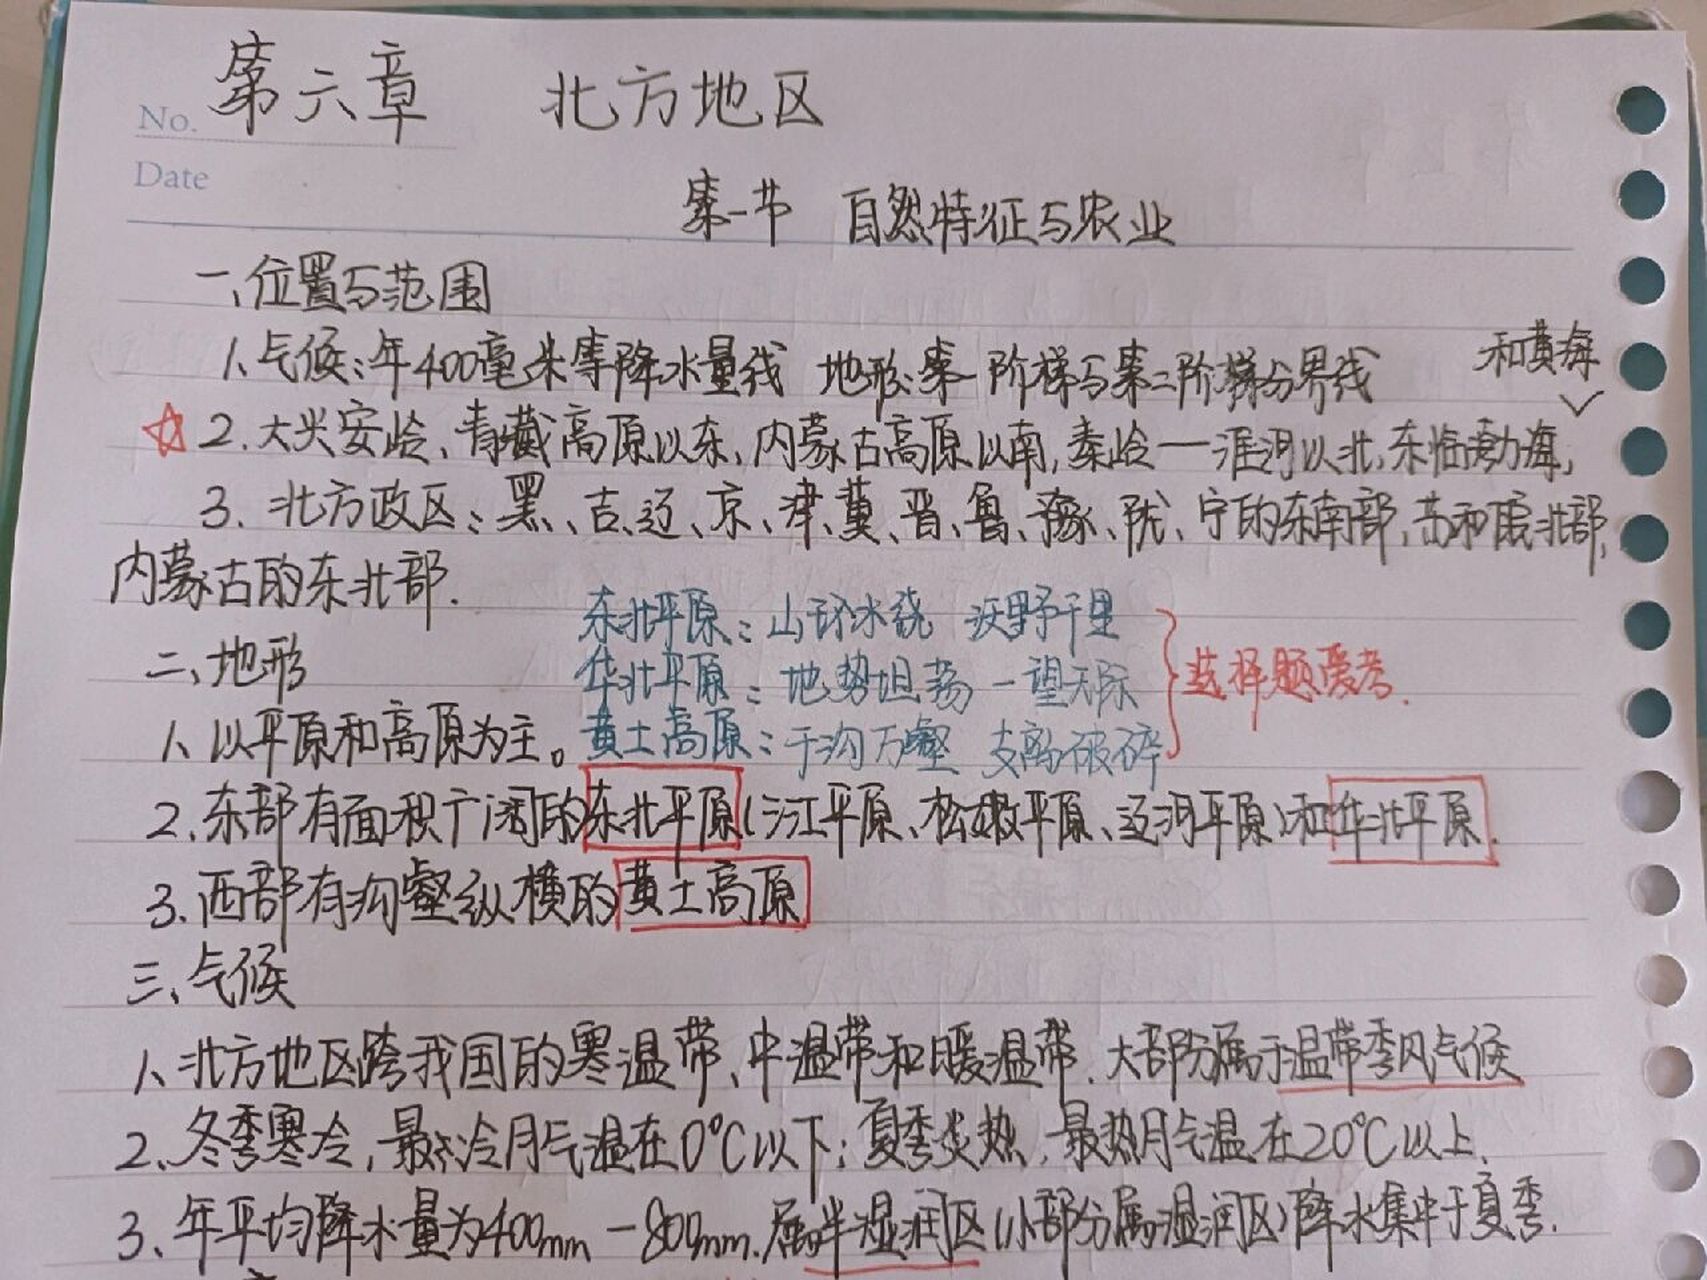 第六章 北方地区
No.
Date
第一节 自然特征与农业
一、位置与范围
1、气候:年400毫米等降水量线 地形:第一阶梯与第二阶梯分界线
和黄海
☆2.大兴安岭、青藏高原以东,内蒙古高原以南,秦岭一淮河以北,东临渤海,
3. 北方政区:黑、吉、辽、京、津、冀、晋、鲁、豫、陇、宁的东南部,苏和皖北部,
内蒙古的东北部.
东北平原:山环水绕 沃野千里
二、地形
华北平原:地势坦荡 一望无际
选择题爱考.
1、以平原和高原为主。
黄土高原:千沟万壑 支离破碎
2.东部有面积广阔的东北平原(三江平原、松嫩平原、辽河平原)和华北平原.
3.西部有沟壑纵横的黄土高原
三、气候
1、北方地区跨我国的寒温带、中温带和暖温带.大部分属于温带季风气候
2、冬季寒冷,最冷月气温在0℃以下;夏季炎热,最热月气温在20℃以上.
3、年平均降水量为400mm一800mm.属半湿润区(小部分属湿润区)降水集中于夏季.